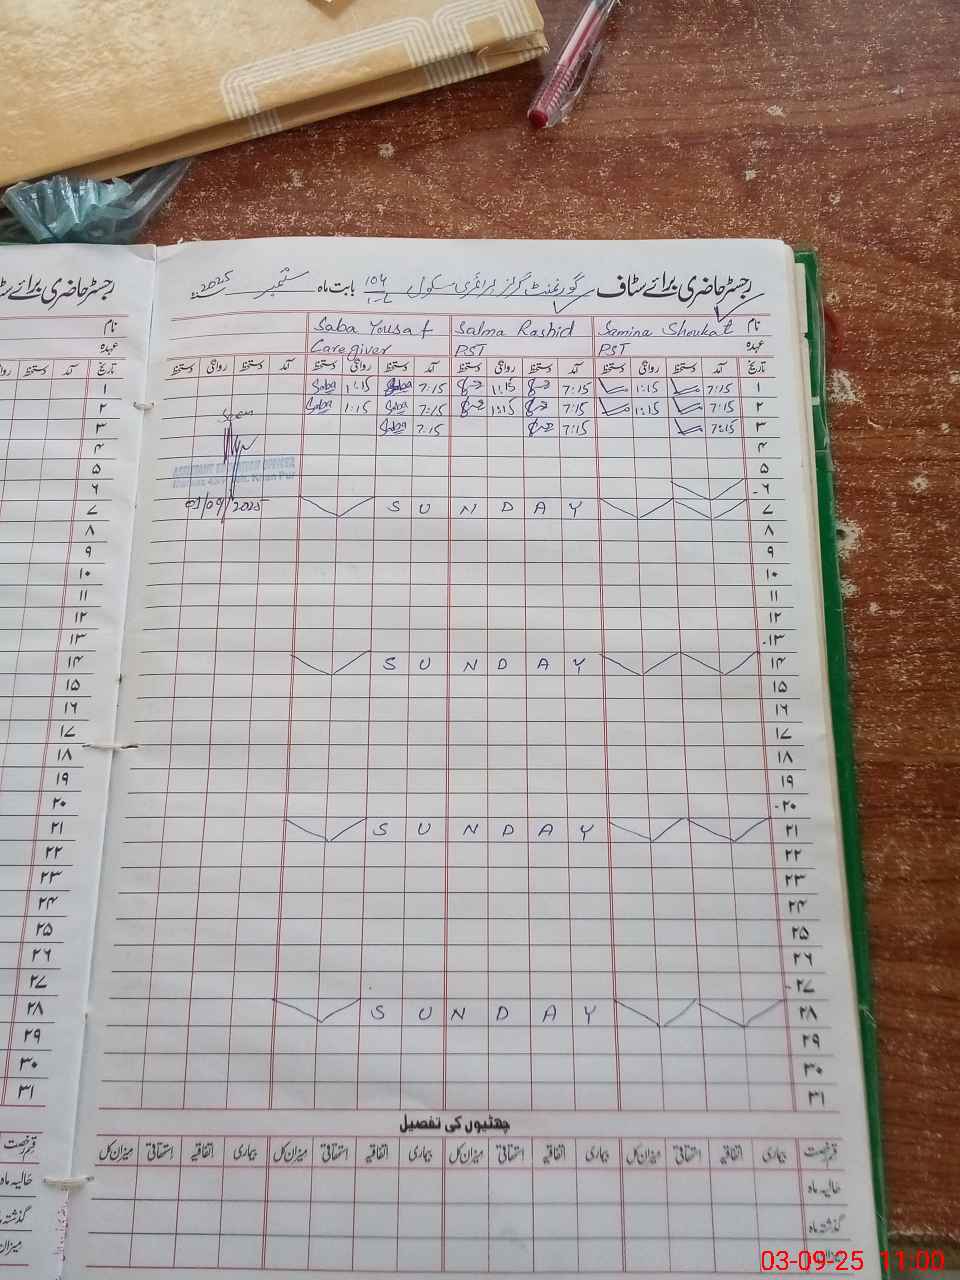 رجسٹر حاضری برائے سٹاف گورنمنٹ گرلز پرائمری سکول 104 1-L بابت ماہ ستمبر سنہ 2025
نام Samina Shoukat Salma Rashid Saba Yousaf
عہدہ PST PST Caregiver
تاریخ آمد دستخط روانگی دستخط آمد دستخط روانگی دستخط آمد دستخط روانگی دستخط آمد دستخط روانگی دستخط
۱ 7:15 1:15 7:15 1:15 7:15 Saba 1:15 Saba
۲ 7:15 1:15 7:15 1:15 7:15 Saba 1:15 Saba
۳ 7:15 7:15 7:15 Saba
۴
Seen
۵
ASSISTANT EDUCATION OFFICER
۶
۷ SUNDAY
03/09/2025
۸
۹
۱۰
۱۱
۱۲
۱۳
۱۴ SUNDAY
۱۵
۱۶
۱۷
۱۸
۱۹
۲۰
۲۱ SUNDAY
۲۲
۲۳
۲۴
۲۵
۲۶
۲۷
۲۸ SUNDAY
۲۹
۳۰
۳۱
چھٹیوں کی تفصیل
قسم رخصت بیماری اتفاقیہ استحقاقی میزان کل بیماری اتفاقیہ استحقاقی میزان کل بیماری اتفاقیہ استحقاقی میزان کل بیماری اتفاقیہ استحقاقی میزان کل
حالیہ ماہ
گذشتہ ماہ
میزان
رجسٹر حاضری برائے
نام
عہدہ
تاریخ آمد دستخط
۱
۲
۳
۴
۵
۶
۷
۸
۹
۱۰
۱۱
۱۲
۱۳
۱۴
۱۵
۱۶
۱۷
۱۸
۱۹
۲۰
۲۱
۲۲
۲۳
۲۴
۲۵
۲۶
۲۷
۲۸
۲۹
۳۰
۳۱
قسم رخصت
حالیہ ماہ
گذشتہ
میزان
03-09-25 11:00